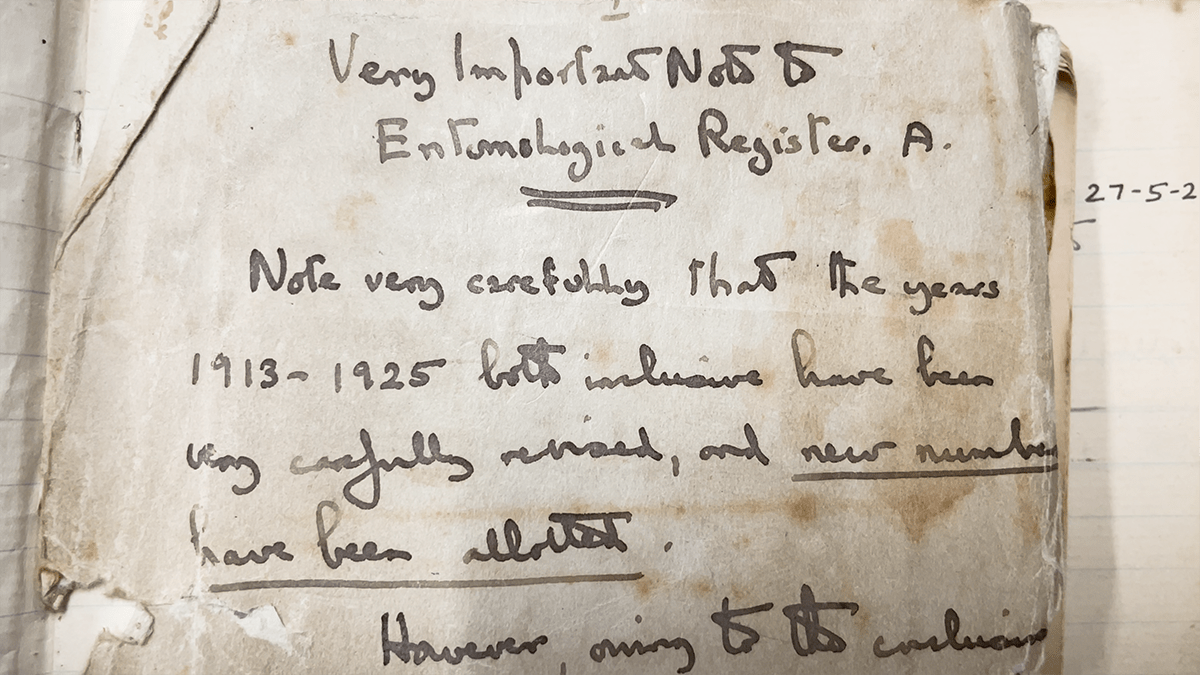 Very Important Note to
Entomological Register. A.
Note very carefully that the years
1913-1925 both inclusive have been
very carefully revised, and new number
have been allotted.
However, owing to the
27-5-2